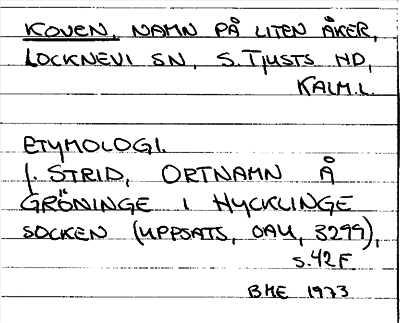 KOVEN, NAMN PÅ LITEN ÅKER,
LOCKNEVI SN, S. TJUSTS HD,
KALM.L.
ETYMOLOGI.
J. STRID, ORTNAMN Å
GRÖNINGE I HYCKLINGE
SOCKEN (UPPSATS, OAU, 3299),
S.42F.
BME 1973